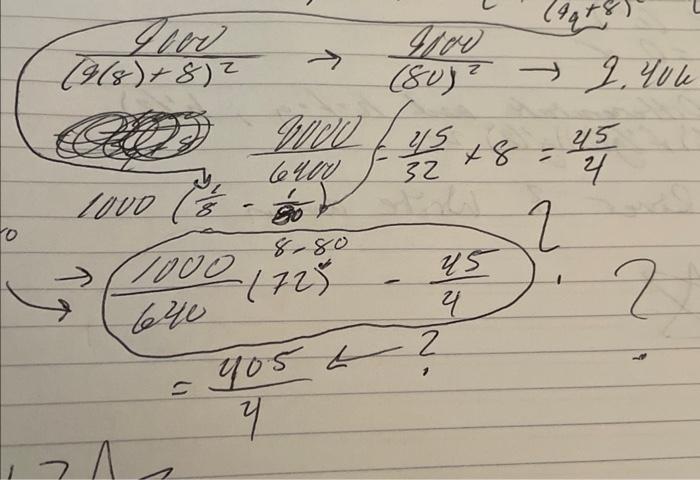 (9q+8)
9000/(9(8)+8)² → 9000/(80)² → 1.406
9000/6400 = 45/32 × 8 = 45/4
1000 (1/8 - 1/80)
8-80
→ 1000/640 (72) - 45/4 ? . ?
= 405/4 ← ?